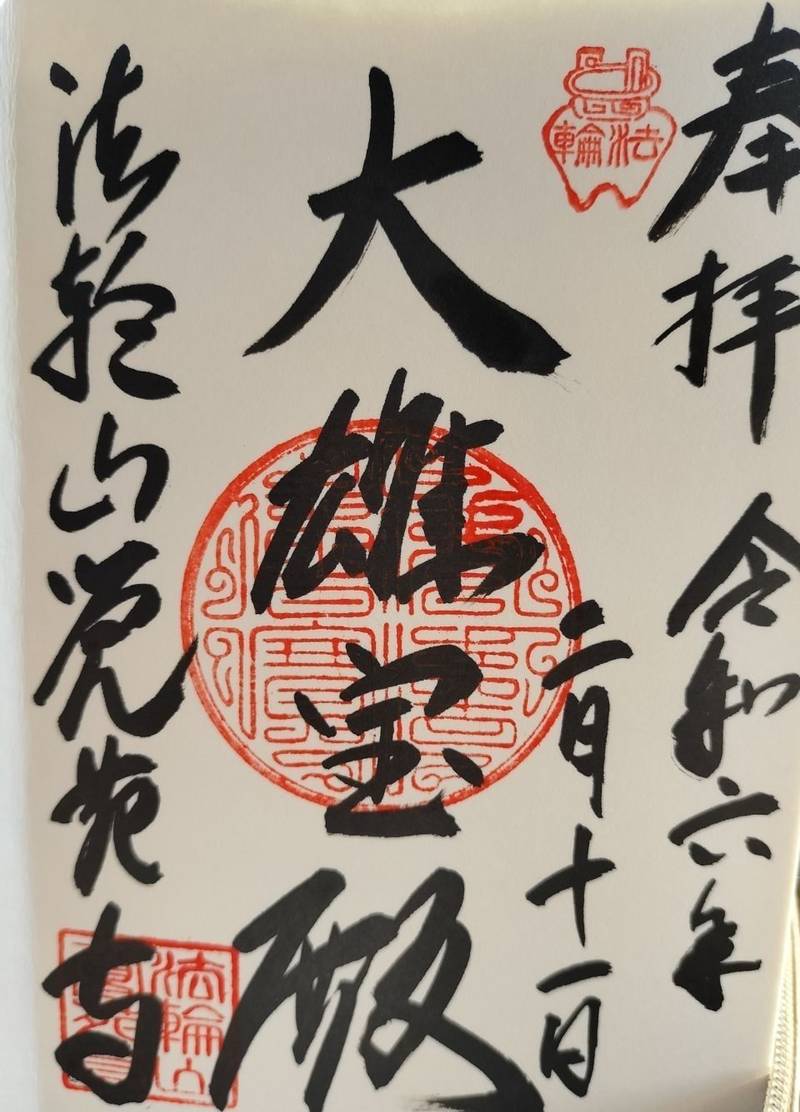 奉拝
令和六年
二月十一日
法輪
大雄宝殿
法輪山覚苑寺
法輪山